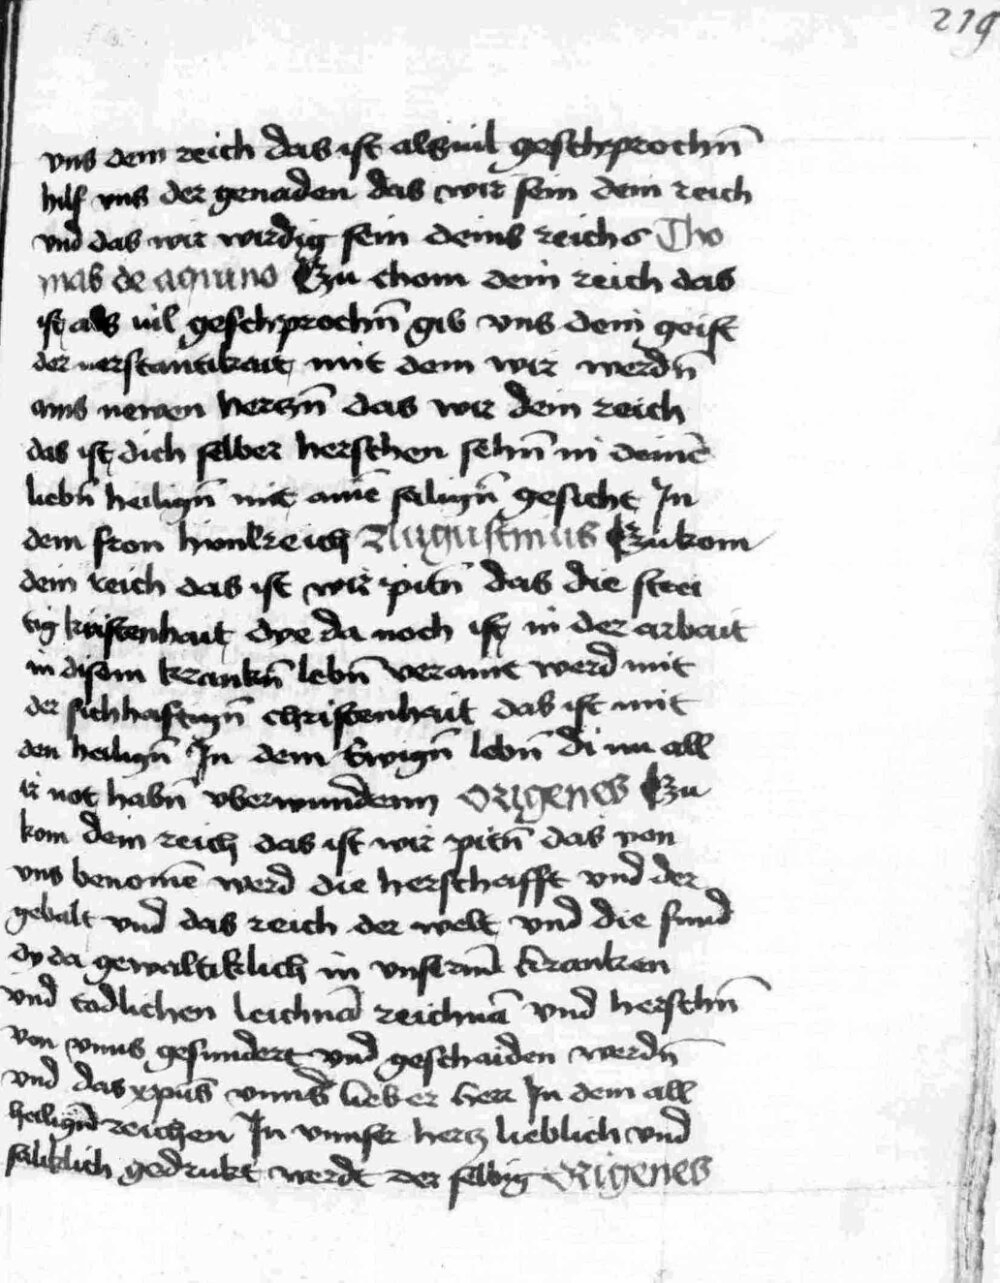 219
vns dem reich das ist alsuil geschprochn̄
hilf vns der genaden das wir sein dein reich
vnd das wir wirdig sein deins reichs Tho
mas de aquino Czu chom dein reich das
ist als uil geschprochn̄ gib vns dein geist
der uerstantikait mit dem wir werdn̄
ains newen herczn̄ das wir dein reich
das ist dich selber herschen sehn̄ in deinē
liebn̄ heilign̄ mit ainē salign̄ gesicht In
dem fron himlreich Augustinus Czukom
dein reich das ist wir pitn̄ das die strei
tig kristenhait dye da noch ist in der arbait
in disem krankn̄ lebn̄ veraint werd mit
der sichhaftign̄ christenhait das ist mit
den heilign̄ In dem Ewign̄ lebn̄ di nu all
ir not habn̄ vberwundenn Origenes Czu
kom dein reich das ist wir pitn̄ das von
vns benomē werd die herschafft vnd der
gebalt vnd das reich der welt vnd die sund
dy da gewaltiklich in vnserm kranken
vnd todlichen leichnā reichnā vnd herschn̄
von vnns gesundert vnd geschaiden werdn̄
vnd das xpūs vnnser lieber herr In dem all
heilign̄d reichen In vnnser hercz lieblich vnd
saliklich gedrukt werdt der selbig Origenes